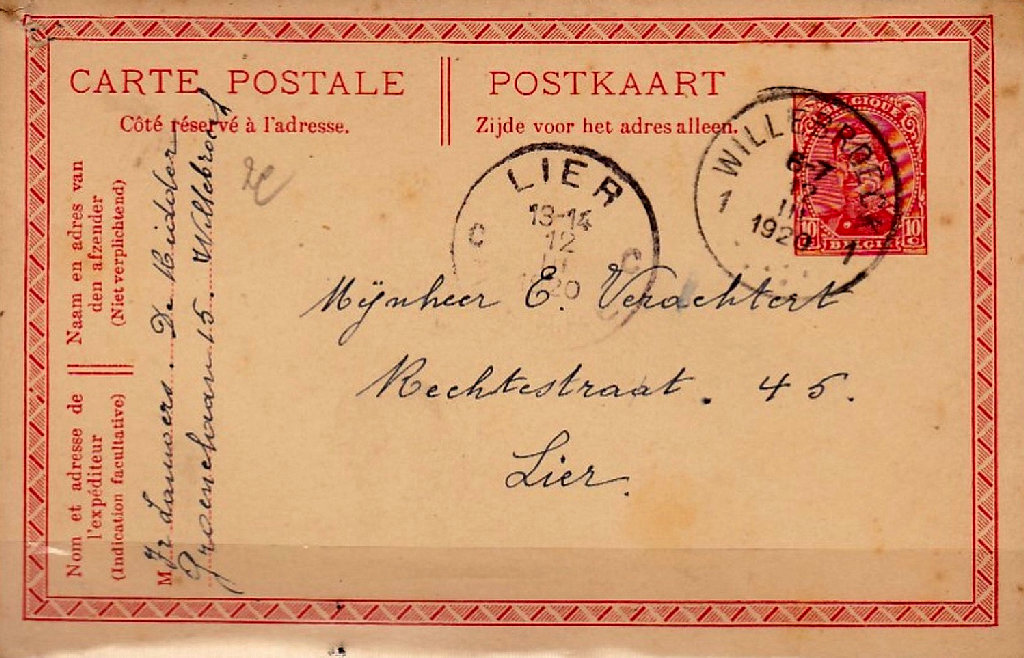 CARTE POSTALE
Côté réservé à l'adresse.
POSTKAART
Zijde voor het adres alleen.
Naam en adres van
den afzender
(Niet verplichtend)
Nom et adresse de
l'expéditeur
(Indication facultative)
M Fr Lauwers. De Ridder
Groenelaan 15. Willebroek
LIER
13-14
12
III
20
C C
WILLEBROECK
6-7
12
III
1920
1 1
BELGIQUE
10c BELGIË 10c
Mijnheer E. Verachtert
Rechtestraat. 45.
Lier.